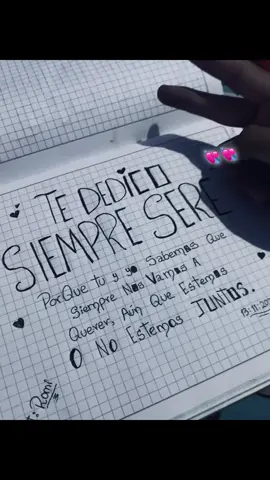 TE DEDICO
SIEMPRE SERE
PorQue tú y yo Sabemos Que
Siempre Nos Vamos A
Querer, Aún Que Estemos
O No Estemos JUNTOS.
: Romi